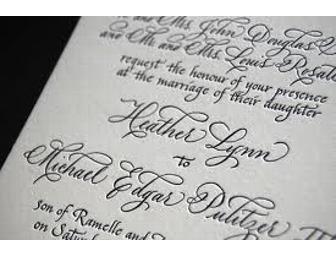 and Mrs. John Douglas
and Mr. and Mrs. Louis Rosal
request the honour of your presence
at the marriage of their daughter
Heather Lynn
to
Michael Edgar Pulitzer III
son of Ramelle and
on Satur